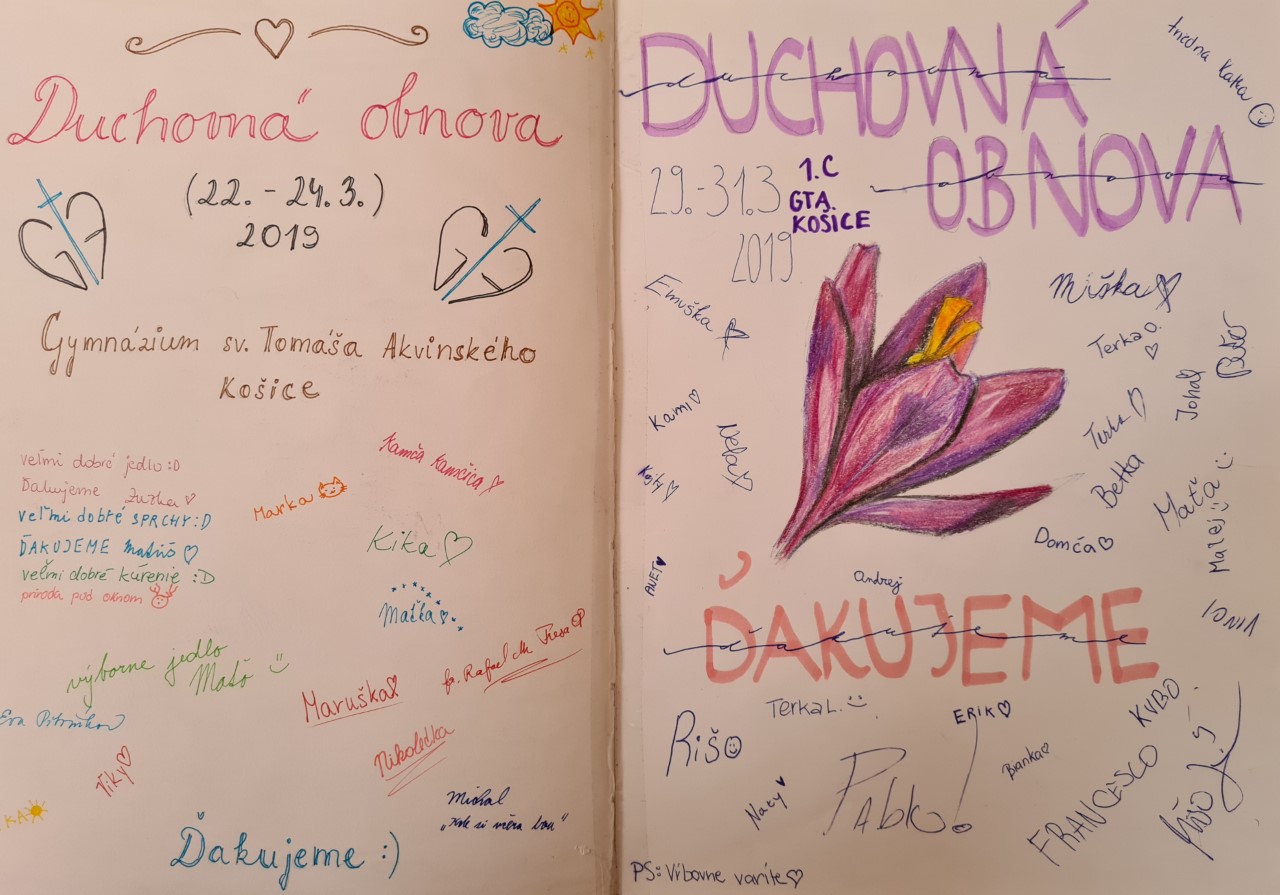 Duchovná obnova
(22. - 24.3.)
2019
Gymnázium sv. Tomáša Akvinského
Košice
veľmi dobré jedlo :D
Ďakujeme Zuzka
veľmi dobré SPRCHY :D
ĎAKUJEME Matúš
veľmi dobré kúrenie :D
príroda pod oknom
Marka
Kamča Kamčica
Kika
Maťka
výborne jedlo
Maťo
Maruška
fr. Rafael M. Tresa
Eva
Nikoletka
Viky
KA
Michal
Ďakujeme :)
DUCHOVNÁ
duchovná
OBNOVA
obnova
29.-31.3
2019
1.C
GTA.
KOŠICE
Katka
Emuška
Miška
Terka O.
Peter
Johal
Kami
Terka
Betka
Maťa :)
Matej
Domča
ANET
Andrej
VINCI
ĎAKUJEME
ďakujeme
Terka L.
Rišo
ERIK
KUBO
Branka
Naty
Pablo!
FRANCESCO
PS: Výborne varíte